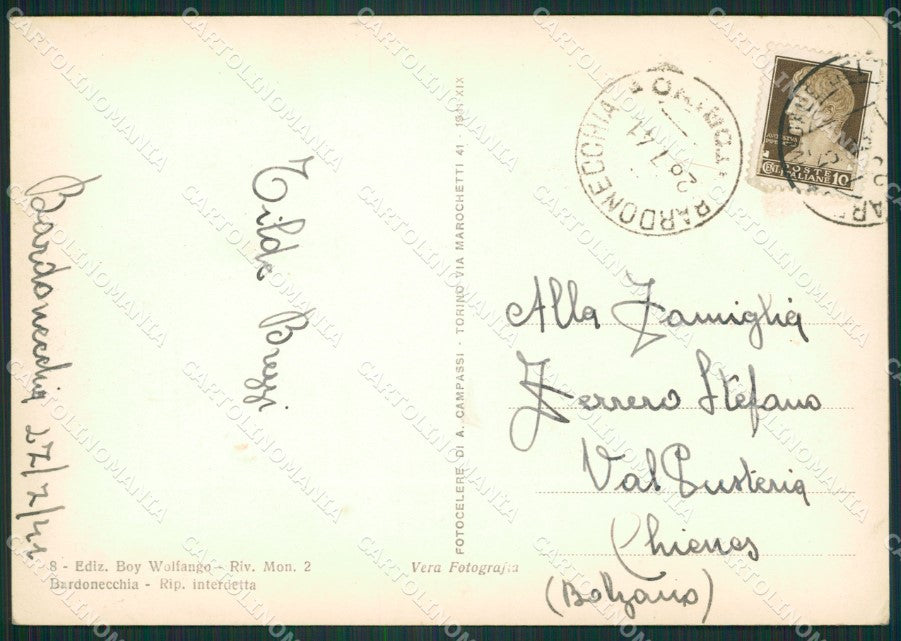 Bardonecchia 27/7/41
Tilde
8 - Ediz. Boy Wolfango - Riv. Mon. 2
Bardonecchia - Rip. interdetta
Vera Fotografia
FOTOCELERE DI A. CAMPASSI - TORINO VIA MAROCHETTI 41 - 1941-XIX
BARDONECCHIA
TORINO
28.7.41
POSTE
ITALIANE 10
CENT
Alla Famiglia
Ferrero Stefano
Val Pusteria
Chienes
(Bolzano)
CARTOLINOMANIA